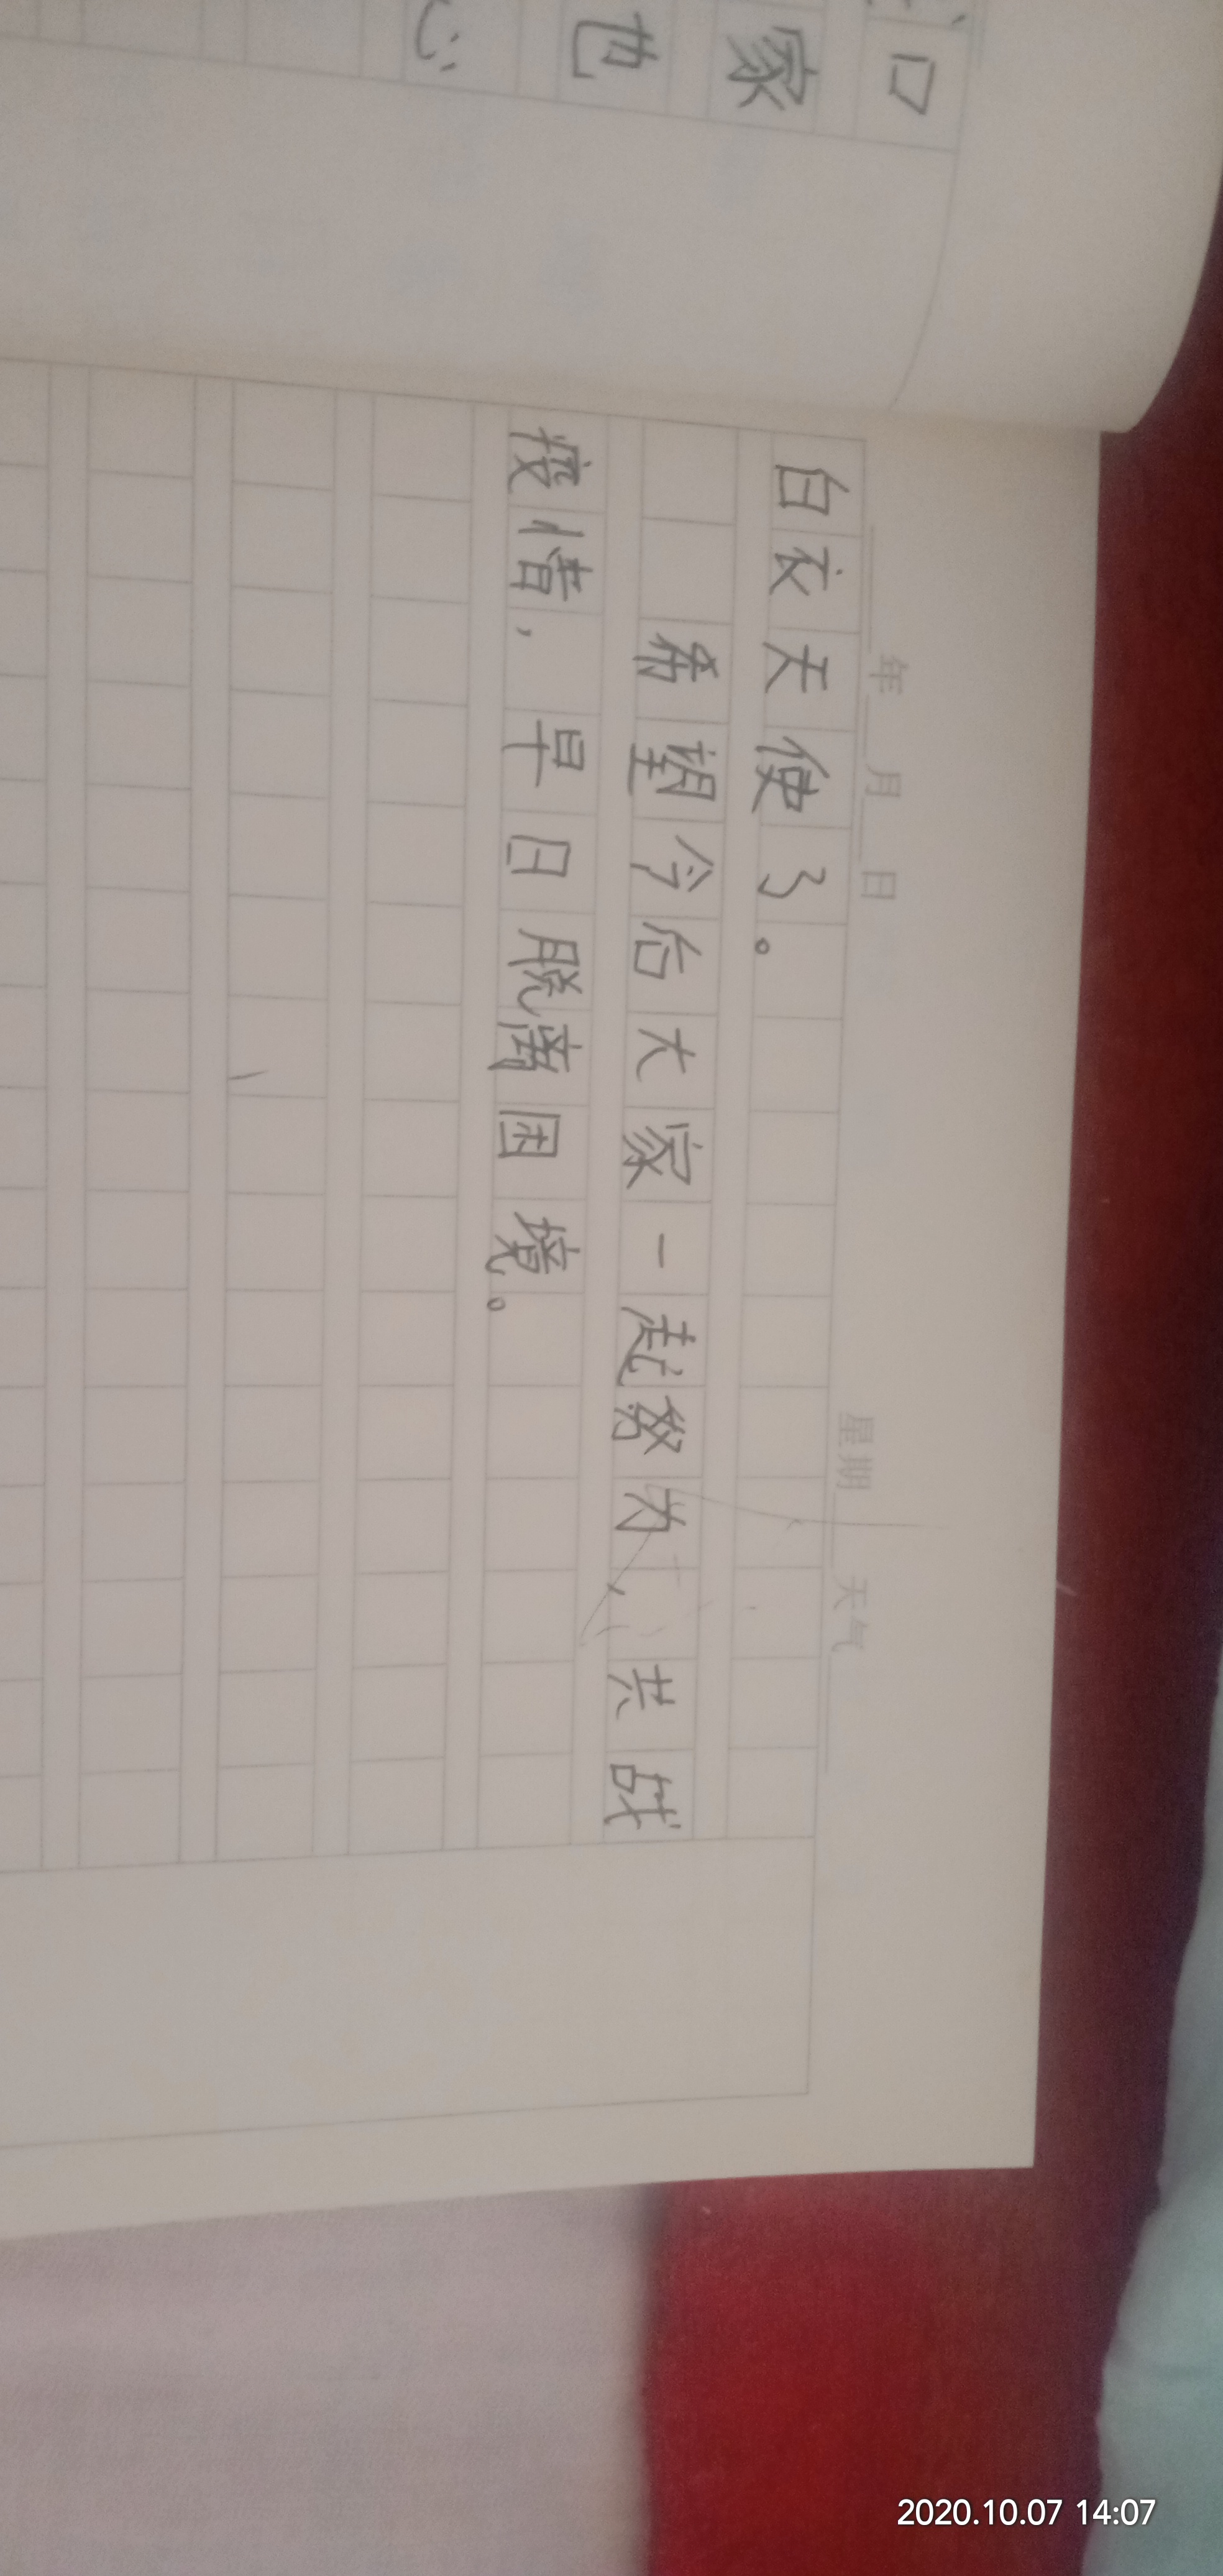 口
家
也
心
年 月 日 星期 天气
白衣天使了。
希望今后大家一起努力，共战
疫情，早日脱离困境。
2020.10.07 14:07